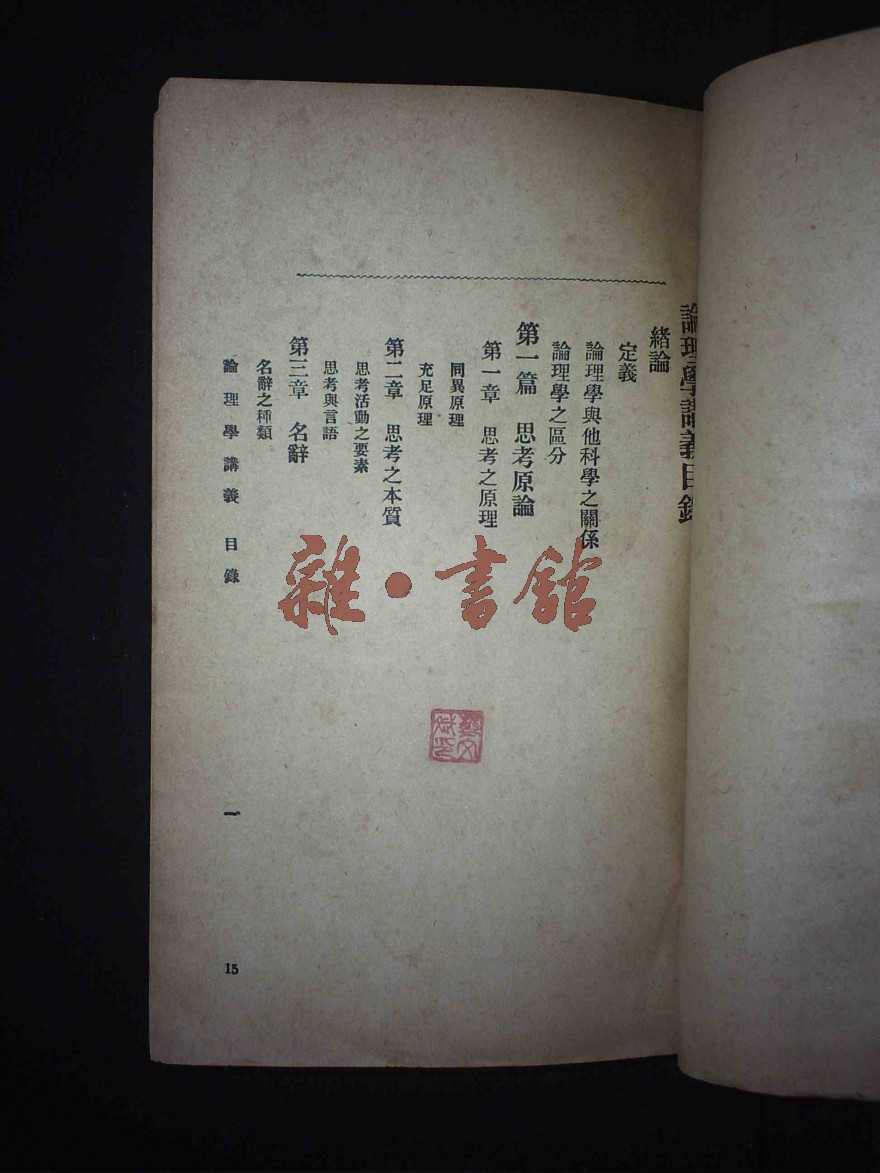 論理學講義目錄
緒論
定義
論理學與他科學之關係
論理學之區分
第一篇 思考原論
第一章 思考之原理
同異原理
充足原理
第二章 思考之本質
思考活動之要素
思考與言語
第三章 名辭
名辭之種類
論理學講義 目錄
一
15
雜·書館